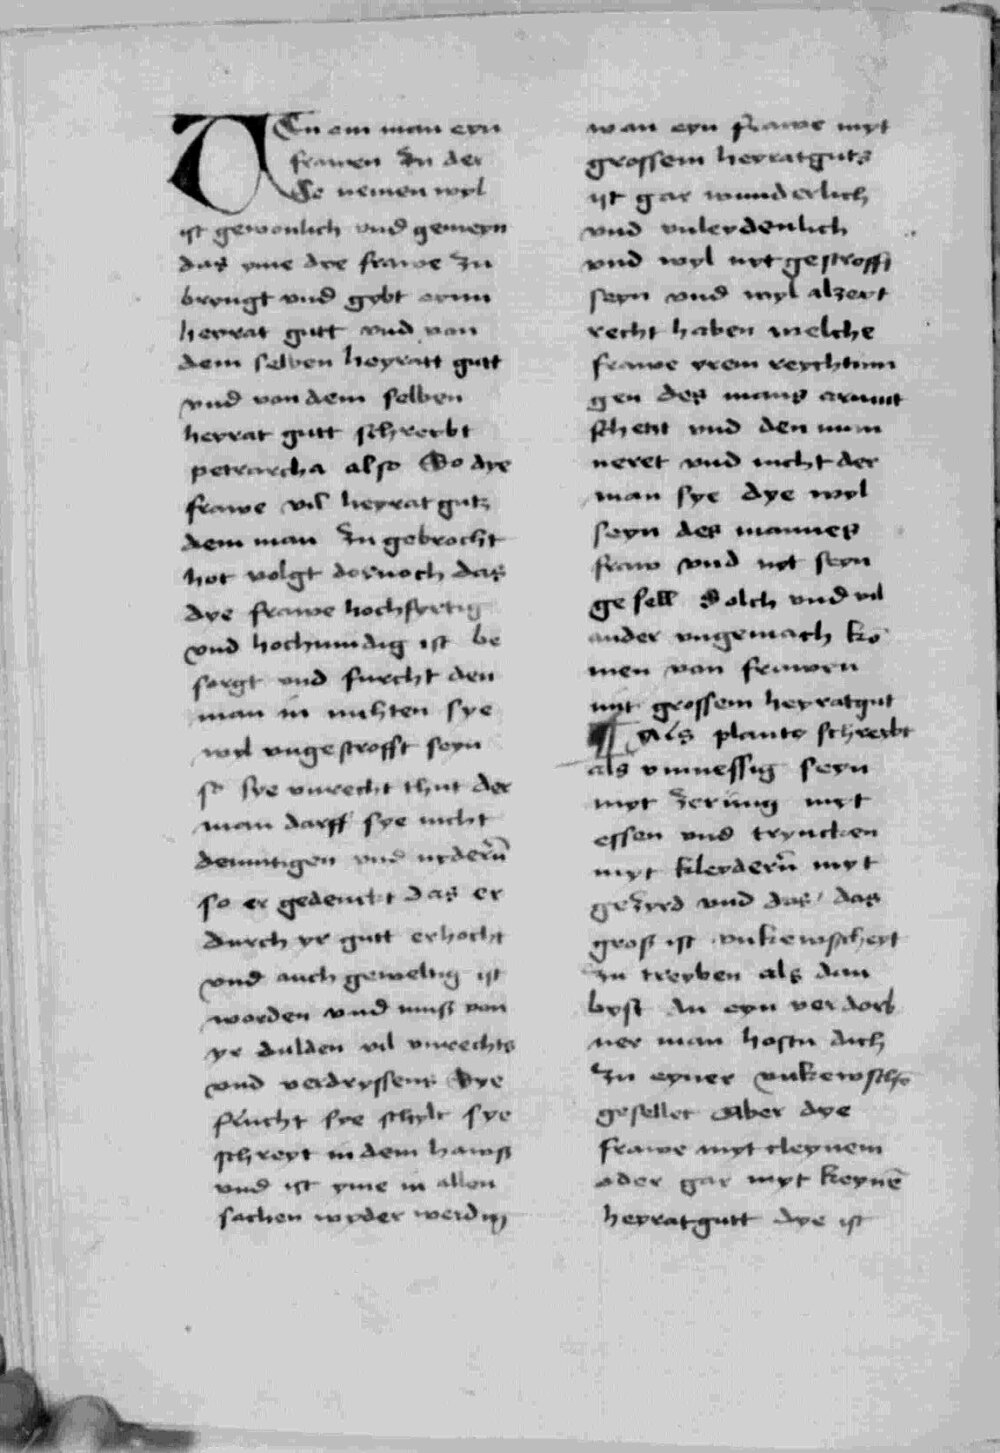 WEn ein man eyn
frawen Zu der
Ee nemen wyl
ist gewonlich vnd gemeyn
das yme dye frawe Zu
brengt vnd gybt eynn
heyrat gutt vnd von
dem selben heyratt gutt
vnd von dem selben
heyrat gutt schreybt
petrarcha also So dye
frawe vil heyrat gutz
dem man Zu gebrocht
hot volgt dornoch das
dye frawe hochfertig
vnd hochmudig ist be
sorgt vnd furcht den
man in nichten sye
wyl vngestrofft seyn
so sye vnrecht thut der
man darff sye nicht
demutigen vnd nydern̄
so er gedenckt das er
durch yr gutt erhocht
vnd auch geweltig ist
worden vnd muß von
yr dulden vil vnrechts
vnd verdryssens Dye
flucht sye schylt sye
schreyt in dem hawß
vnd ist yme in allen
sachen wyder werdig
wan eyn frawe myt
grossem heyratguts
ist gar wunderlich
vnd vnleydenlich
vnd wyl nyt gestrofft
seyn vnd wyl alzeyt
recht haben welche
frawe yrem reychtum
gen des mans armut
schetzt vnd den mum
neret vnd nicht der
man sye dye wyl
seyn des mannes
fraw vnd nyt seyn
gesell Solch vnd vil
ander vngemach kō
men von frawen
mit grossem heyratgut
¶ Als plauto schreybt
als vnmessig seyn
myt Zerung myt
essen vnd tryncken
myt kleydern̄ myt
geZyrd vnd das das
groß ist vnkewscheyt
Zu treyben als dan
byst du eyn verdorb
ner man hostu dich
Zu eyner vnkewschē
gesellet Aber dye
frawe myt cleynem
ader gar myt keynē
heyratgutt dye ist